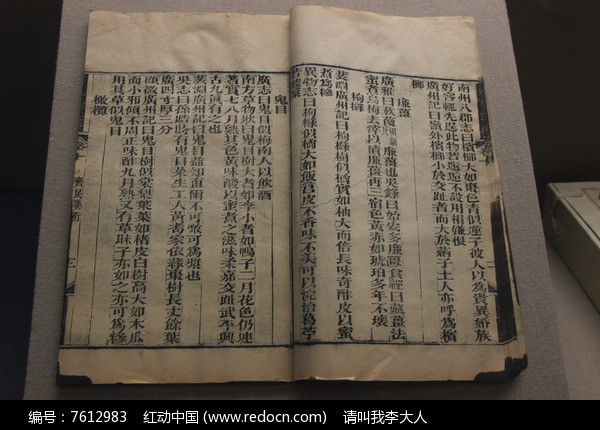 南州八郡志曰檳榔大如棗色青似蓮子彼人以為貴異婚族
好客輒先逞此物若邂逅不設用相嫌恨
廣州記曰嶺外檳榔小於交趾者而大於蒳子土人亦呼為檳
榔
廉薑
廣雅曰蔟葰廉薑也吳錄曰始安多廉薑食經曰藏薑法
蜜煮烏梅去滓以漬廉薑再三宿色黃赤如琥珀多年不壞
枸櫞
裴淵廣州記曰枸櫞樹似橘實如柚大而倍長味奇酢皮以蜜
煮為糝
異物志曰枸櫞似橘大如飯筥皮不香味不美可以浣治葛苧
若酸漿
鬼目
廣志曰鬼目似梅南人以飲酒
南方草物狀曰鬼目樹大者如李小者如鴨子二月花色仍連
著實七八月熟其色黃味酸以蜜煮之滋味柔嘉交趾武平興
古九真有之也
裴淵廣州記曰鬼目益知直爾不可噉可為漿也
吳志曰孫皓時有鬼目菜生工人黃耇家依緣棗樹長丈餘葉
廣四寸厚三分
顧微廣州記曰鬼目樹似棠梨葉如楮皮白樹高大如木瓜
而小邪傾不周正味酢九月熟又有草昧子亦如之亦可為糝
用其草似鬼目
橄欖
齊民要術
编号：7612983 红动中国 (www.redocn.com) 请叫我李大人